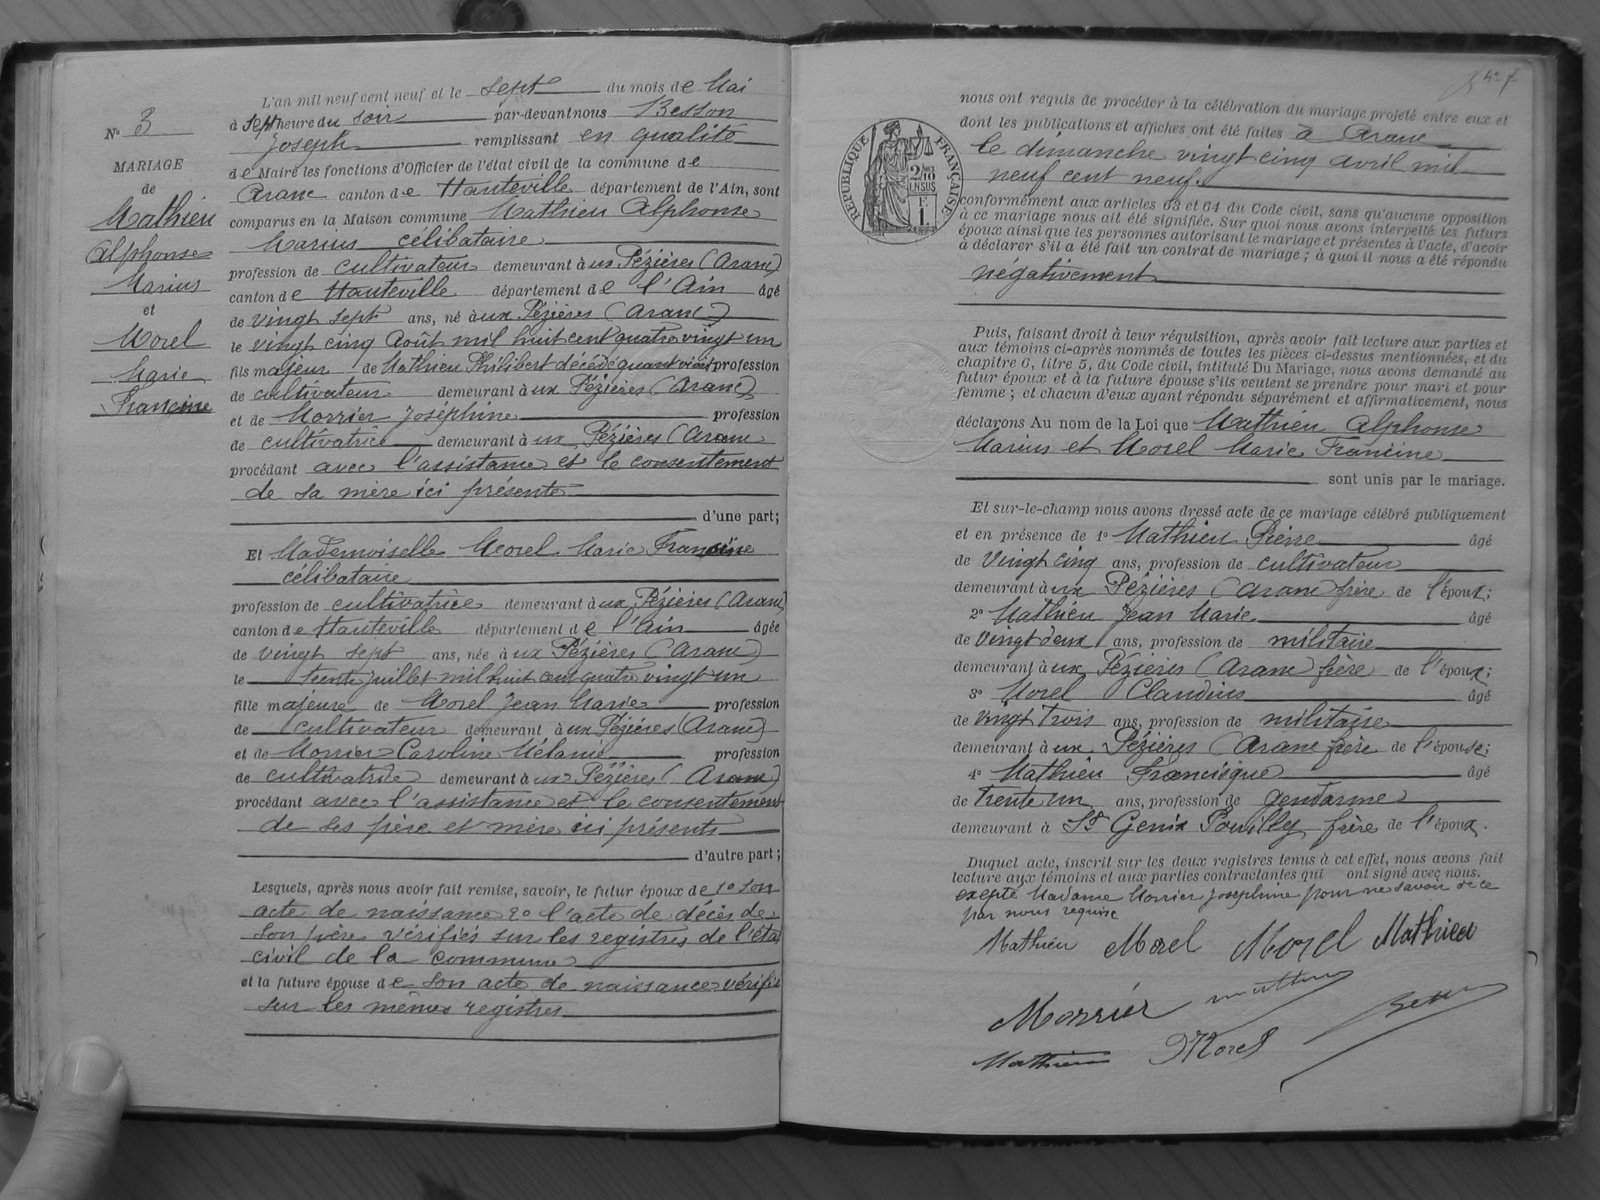 L'an mil neuf cent neuf et le sept du mois de Mai
à sept heure du soir par-devant nous Besson
Joseph remplissant en qualité
de Maire les fonctions d'Officier de l'état civil de la commune de
Aranc canton de Hauteville département de l'Ain, sont
comparus en la Maison commune Mathieu Alphonse
Marius célibataire
profession de cultivateur demeurant à ux Pézières (Aranc)
canton de Hauteville département de l'Ain âgé
de vingt sept ans, né à ux Pézières (Aranc)
le vingt cinq Août mil huit cent quatre vingt un
fils majeur de Mathieu Philibert décédé quand vivait profession
de cultivateur demeurant à ux Pézières (Aranc)
et de Morrier Joséphine profession
de cultivatrice demeurant à ux Pézières (Aranc
procédant avec l'assistance et le consentement
de sa mère ici présente
d'une part;
Et Mademoiselle Morel Marie Francine
célibataire
profession de cultivatrice demeurant à ux Pézières (Aranc)
canton de Hauteville département de l'Ain âgée
de vingt sept ans, née à ux Pézières (Aranc)
le trente juillet mil huit cent quatre vingt un
fille majeure de Morel Jean Marie profession
de cultivateur demeurant à ux Pézières (Aranc)
et de Morrier Caroline Mélanie profession
de cultivatrice demeurant à ux Pézières (Aranc)
procédant avec l'assistance et le consentement
de ses père et mère ici présents
d'autre part;
Lesquels, après nous avoir fait remise, savoir, le futur époux de 1° son
acte de naissance 2° l'acte de décès de
son père vérifiés sur les registres de l'état
civil de la commune
et la future épouse de son acte de naissance vérifié
sur les mêmes registres
N° 3
MARIAGE
de
Mathieu
Alphonse
Marius
et
Morel
Marie
Francine
nous ont requis de procéder à la célébration du mariage projeté entre eux et
dont les publications et affiches ont été faites à Aranc
le dimanche vingt cinq avril mil
neuf cent neuf.
conformément aux articles 63 et 64 du Code civil, sans qu'aucune opposition
à ce mariage nous ait été signifiée. Sur quoi nous avons interpellé les futurs
époux ainsi que les personnes autorisant le mariage et présentes à l'acte, d'avoir
à déclarer s'il a été fait un contrat de mariage ; à quoi il nous a été répondu
négativement
RÉPUBLIQUE FRANÇAISE
Puis, faisant droit à leur réquisition, après avoir fait lecture aux parties et
aux témoins ci-après nommés de toutes les pièces ci-dessus mentionnées, et du
chapitre 6, titre 5, du Code civil, intitulé Du Mariage, nous avons demandé au
futur époux et à la future épouse s'ils veulent se prendre pour mari et pour
femme ; et chacun d'eux ayant répondu séparément et affirmativement, nous
déclarons Au nom de la Loi que Mathieu Alphonse
Marius et Morel Marie Francine
sont unis par le mariage.
Et sur-le-champ nous avons dressé acte de ce mariage célébré publiquement
et en présence de 1° Mathieu Pierre âgé
de vingt cinq ans, profession de cultivateur
demeurant à ux Pézières (Aranc frère de l'époux;
2° Mathieu Jean Marie âgé
de vingt deux ans, profession de militaire
demeurant à ux Pézières (Aranc) frère de l'époux;
3° Morel Claudius âgé
de vingt trois ans, profession de militaire
demeurant à ux Pézières (Aranc frère de l'épouse;
4° Mathieu Francisque âgé
de trente un ans, profession de gendarme
demeurant à St Genix Pouilly frère de l'époux.
Duquel acte, inscrit sur les deux registres tenus à cet effet, nous avons fait
lecture aux témoins et aux parties contractantes qui ont signé avec nous.
excepté Madame Morrier Joséphine pour ne savoir de ce
par nous requise
Mathieu Morel Morel Mathieu
Morrier Mathieu Besson
Mathieu Morel